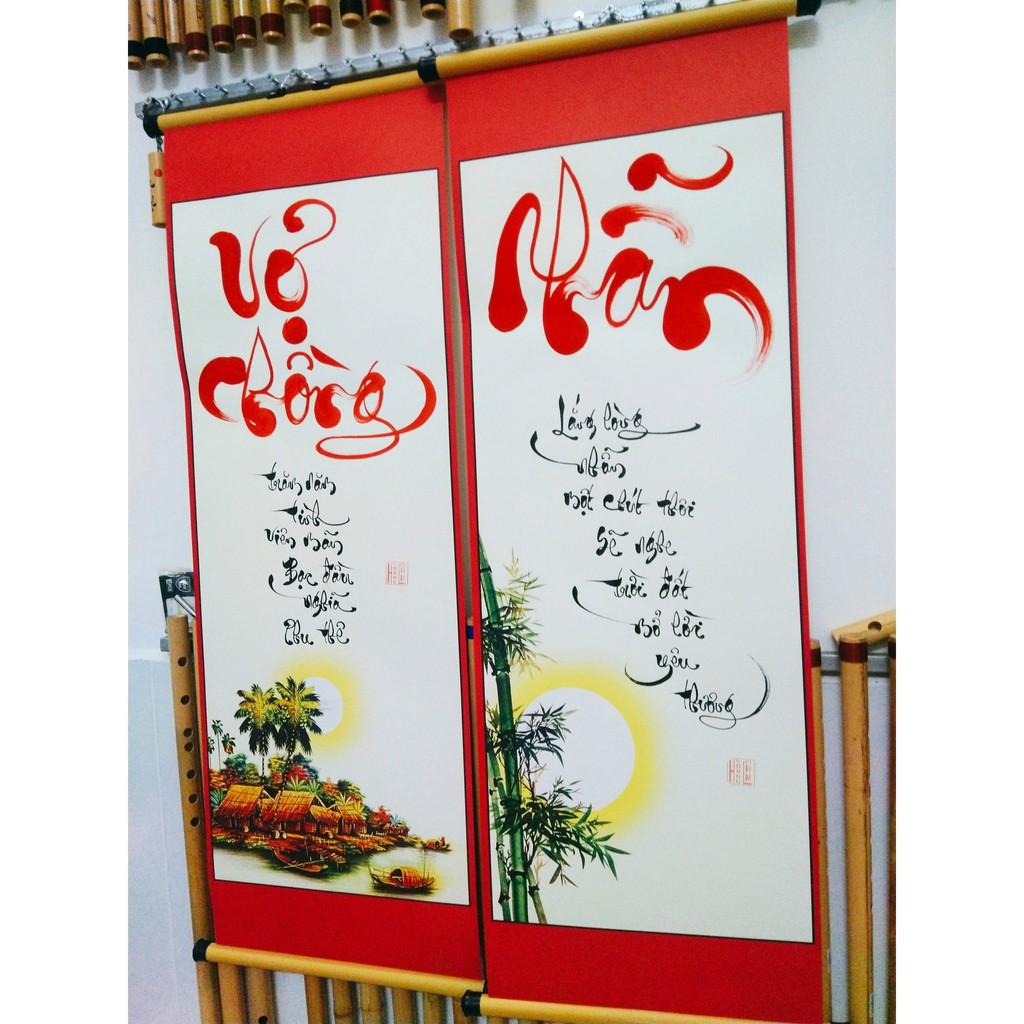 Vợ
chồng
trăm năm
tình
viên mãn
Bạc đầu
nghĩa
phu thê
Nhẫn
Lắng lòng
nhẫn
một chút thôi
sẽ nghe
trời đất
mở lời
yêu
thương